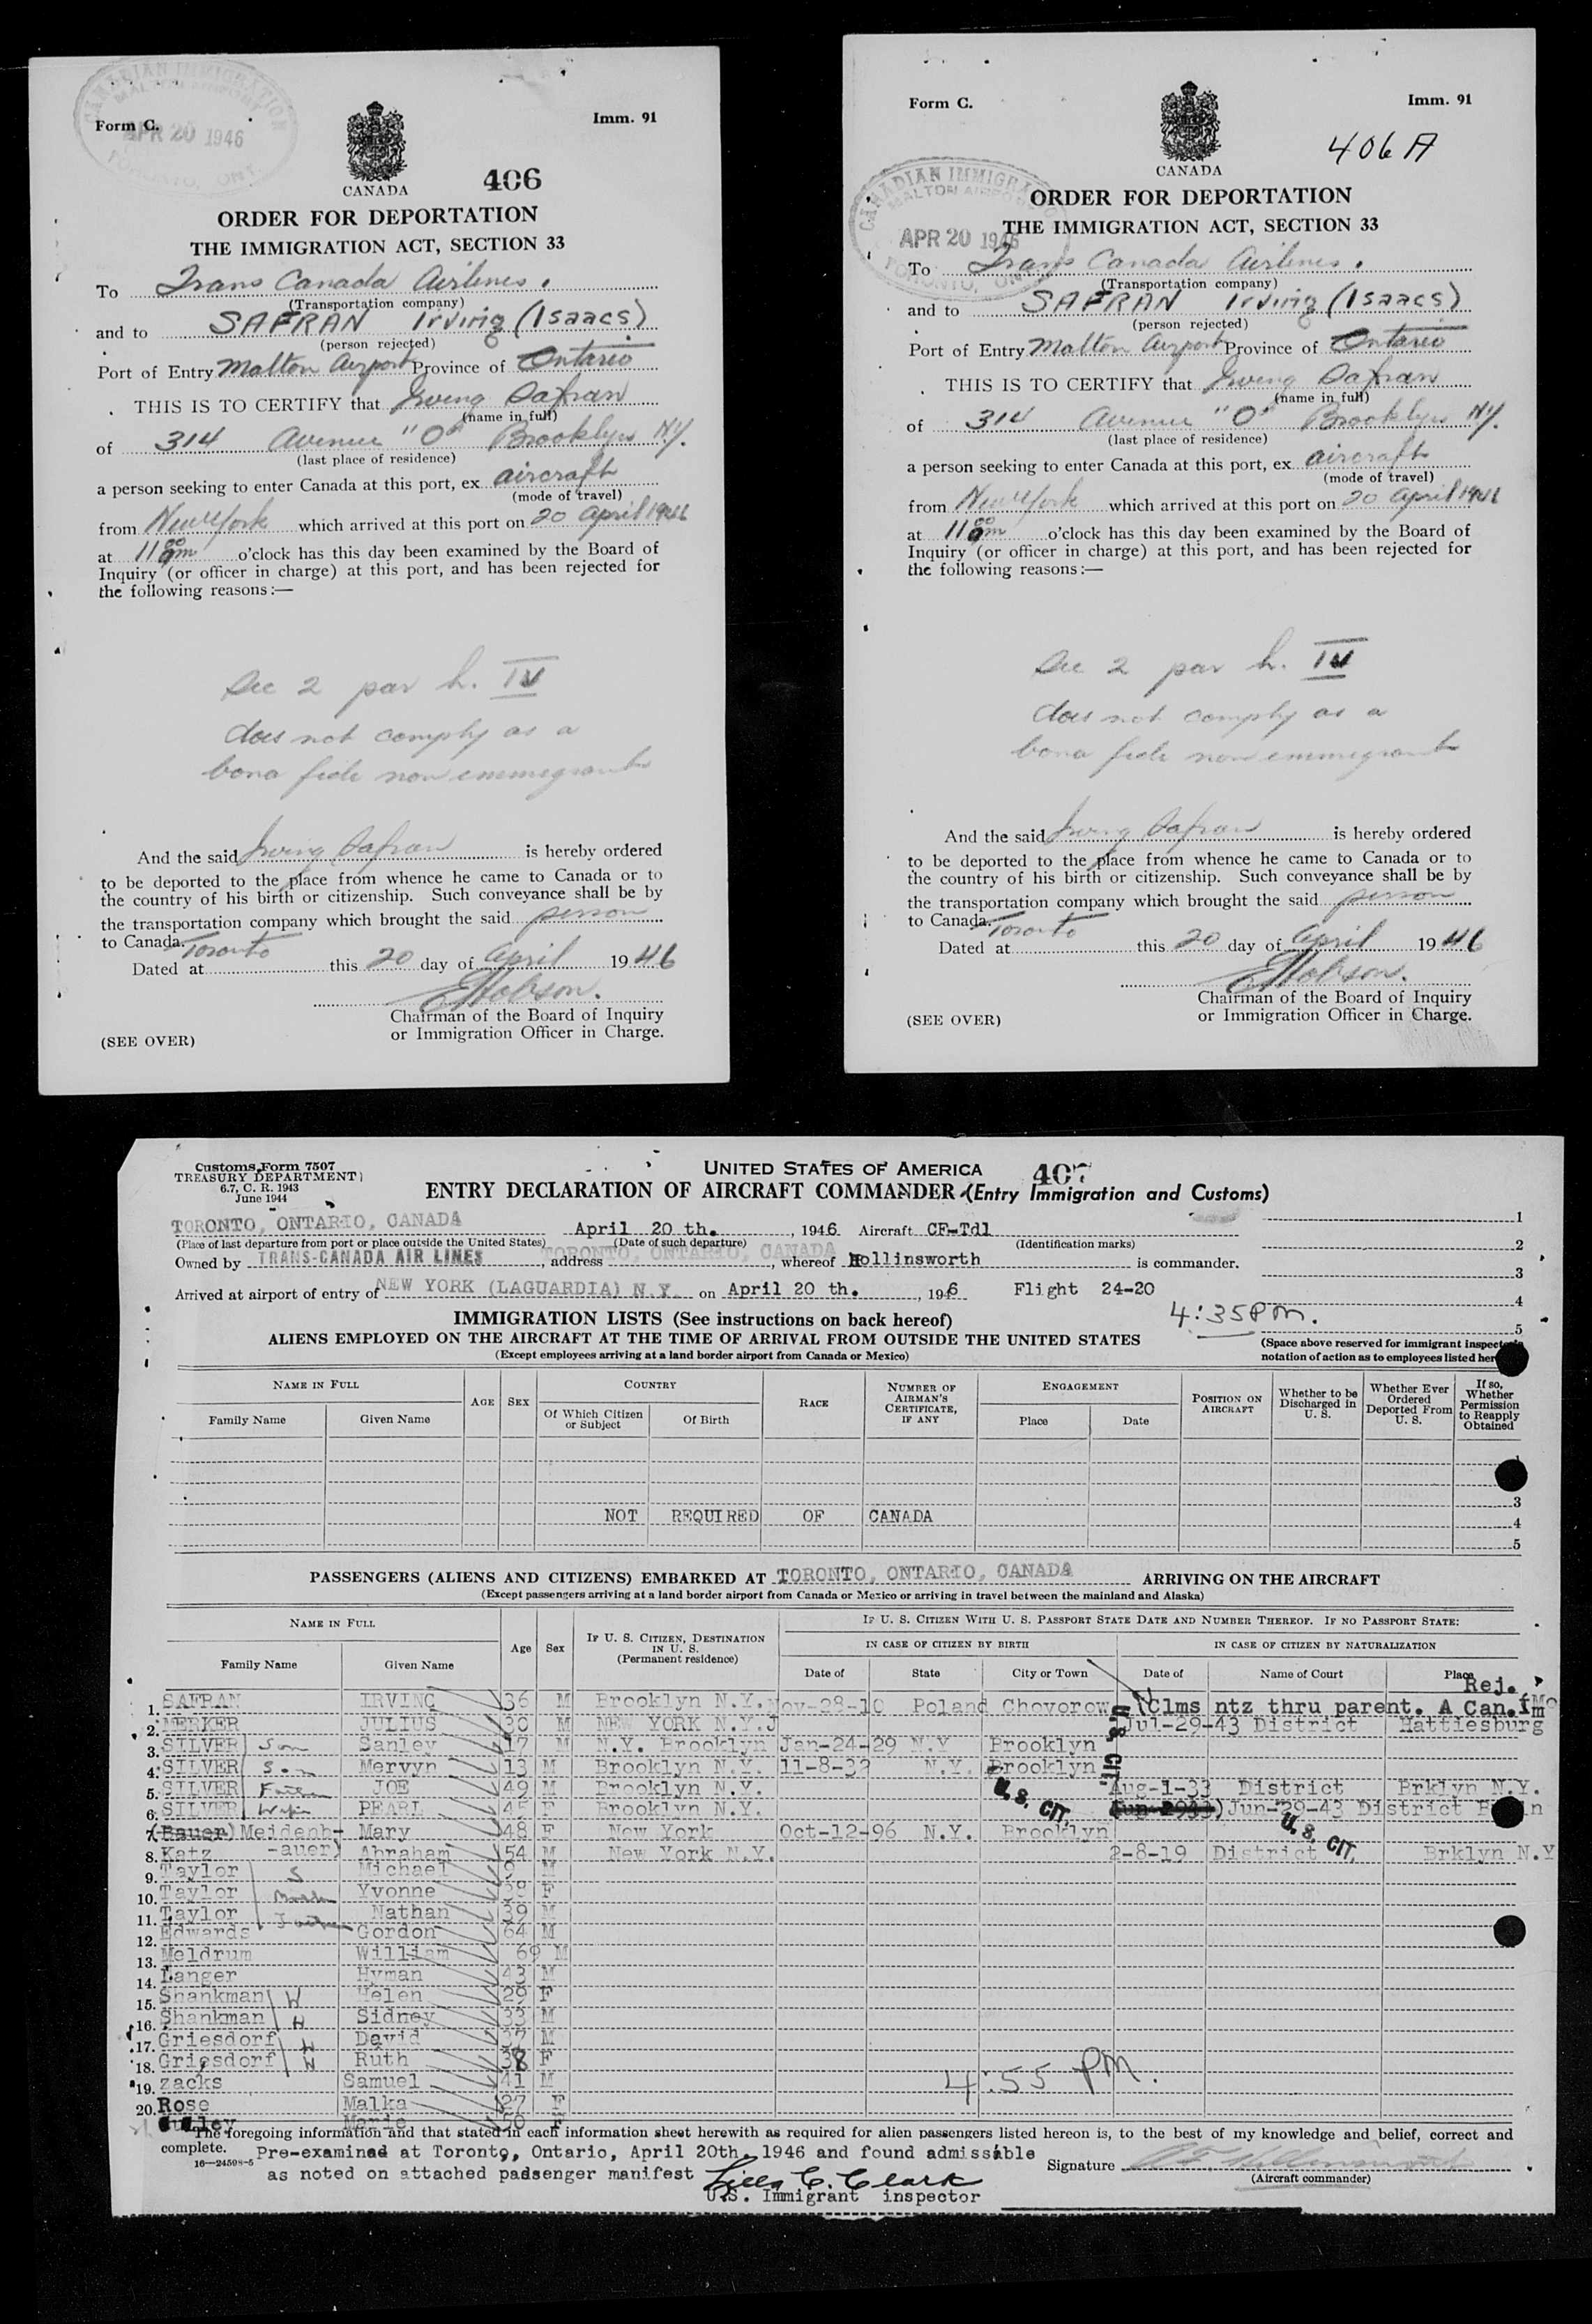 CANADIAN IMMIGRATION
MALTON AIRPORT
APR 20 1946
TORONTO, ONT.
Form C.
Imm. 91
CANADA
406
ORDER FOR DEPORTATION
THE IMMIGRATION ACT, SECTION 33
To Trans Canada Airlines.
(Transportation company)
and to SAFRAN Irving (Isaacs)
(person rejected)
Port of Entry Malton Airport Province of Ontario
THIS IS TO CERTIFY that Irving Safran
(name in full)
of 314 Avenue "O" Brooklyn N.Y.
(last place of residence)
a person seeking to enter Canada at this port, ex aircraft
(mode of travel)
from New York which arrived at this port on 20 April 1946
at 11 00 am o'clock has this day been examined by the Board of
Inquiry (or officer in charge) at this port, and has been rejected for
the following reasons:—
Sec 2 par h. IV
does not comply as a
bona fide non immigrant
And the said Irving Safran is hereby ordered
to be deported to the place from whence he came to Canada or to
the country of his birth or citizenship. Such conveyance shall be by
the transportation company which brought the said person
to Canada.
Dated at Toronto this 20 day of April 1946
EHobson.
Chairman of the Board of Inquiry
or Immigration Officer in Charge.
(SEE OVER)
Form C.
Imm. 91
406 A
CANADA
CANADIAN IMMIGRATION
MALTON AIRPORT
APR 20 1946
TORONTO, ONT.
ORDER FOR DEPORTATION
THE IMMIGRATION ACT, SECTION 33
To Trans Canada Airlines.
(Transportation company)
and to SAFRAN Irving (Isaacs)
(person rejected)
Port of Entry Malton Airport Province of Ontario
THIS IS TO CERTIFY that Irving Safran
(name in full)
of 314 Avenue "O" Brooklyn N.Y.
(last place of residence)
a person seeking to enter Canada at this port, ex aircraft
(mode of travel)
from New York which arrived at this port on 20 April 1946
at 11 00 am o'clock has this day been examined by the Board of
Inquiry (or officer in charge) at this port, and has been rejected for
the following reasons:—
Sec 2 par h. IV
does not comply as a
bona fide non immigrant
And the said Irving Safran is hereby ordered
to be deported to the place from whence he came to Canada or to
the country of his birth or citizenship. Such conveyance shall be by
the transportation company which brought the said person
to Canada.
Dated at Toronto this 20 day of April 1946
EHobson.
Chairman of the Board of Inquiry
or Immigration Officer in Charge.
(SEE OVER)
Customs Form 7507
TREASURY DEPARTMENT
6.7, C. R. 1943
June 1944
UNITED STATES OF AMERICA 407
ENTRY DECLARATION OF AIRCRAFT COMMANDER (Entry Immigration and Customs)
TORONTO, ONTARIO, CANADA April 20 th. , 1946 Aircraft CF-Tdl 1
(Place of last departure from port or place outside the United States) (Date of such departure) (Identification marks) 2
Owned by TRANS-CANADA AIR LINES , address TORONTO, ONTARIO, CANADA , whereof Hollinsworth is commander. 3
Arrived at airport of entry of NEW YORK (LAGUARDIA) N.Y. on April 20 th. , 1946 Flight 24-20 4
4:35 PM. 5
IMMIGRATION LISTS (See instructions on back hereof)
ALIENS EMPLOYED ON THE AIRCRAFT AT THE TIME OF ARRIVAL FROM OUTSIDE THE UNITED STATES
(Except employees arriving at a land border airport from Canada or Mexico)
(Space above reserved for immigrant inspector's
notation of action as to employees listed her
NAME IN FULL
Family Name Given Name
AGE SEX
COUNTRY
Of Which Citizen or Subject Of Birth
RACE
NUMBER OF AIRMAN'S CERTIFICATE, IF ANY
ENGAGEMENT
Place Date
POSITION ON AIRCRAFT
Whether to be Discharged in U. S.
Whether Ever Ordered Deported From U. S.
If so, Whether Permission to Reapply Obtained
3
NOT REQUIRED OF CANADA 4
5
PASSENGERS (ALIENS AND CITIZENS) EMBARKED AT TORONTO, ONTARIO, CANADA ARRIVING ON THE AIRCRAFT
(Except passengers arriving at a land border airport from Canada or Mexico or arriving in travel between the mainland and Alaska)
NAME IN FULL
Family Name Given Name
Age Sex
IF U. S. CITIZEN, DESTINATION IN U. S. (Permanent residence)
IF U. S. CITIZEN WITH U. S. PASSPORT STATE DATE AND NUMBER THEREOF. IF NO PASSPORT STATE:
IN CASE OF CITIZEN BY BIRTH IN CASE OF CITIZEN BY NATURALIZATION
Date of State City or Town Date of Name of Court Place
Rej.
1. SAFRAN IRVING 36 M Brooklyn N.Y. Nov-28-10 Poland Chovorow (Clms ntz thru parent. A Can. Imm
2. MERKER JULIUS 30 M NEW YORK N.Y. Jul-29-43 District Hattiesburg
3. SILVER Son Sanley 17 M N.Y. Brooklyn Jan-24-29 N.Y Brooklyn
4. SILVER Son Mervyn 13 M Brooklyn N.Y. 11-8-32 N.Y. Brooklyn
5. SILVER Father JOE 49 M Brooklyn N.Y. Aug-1-33 District Brklyn N.Y.
6. SILVER Wife PEARL 45 F Brooklyn N.Y. Jun-29-43 District
7. (Bauer) Meidenh- Mary 48 F New York Oct-12-96 N.Y. Brooklyn
8. Katz -auer) Abraham 54 M New York N.Y. 2-8-19 District Brklyn N.Y
U.S. CIT.
U.S. CIT.
U.S. CIT.
9. Taylor S Michael 9 M
10. Taylor Mother Yvonne 38 F
11. Taylor Father Nathan 39 M
12. Edwards Gordon 64 M
13. Meldrum William 69 M
14. Langer Hyman 43 M
15. Shankman W Helen 29 F
16. Shankman H Sidney 33 M
17. Griesdorf H David 37 M
18. Griesdorf W Ruth 38 F
19. zacks Samuel 41 M
20. Rose Malka 27 F
Marie 50 F
4:55 PM.
The foregoing information and that stated in each information sheet herewith as required for alien passengers listed hereon is, to the best of my knowledge and belief, correct and
complete. Pre-examined at Toronto, Ontario, April 20th, 1946 and found admissable
16—24598-5 as noted on attached passenger manifest Signature
C. Clark (Aircraft commander)
U.S. Immigrant inspector